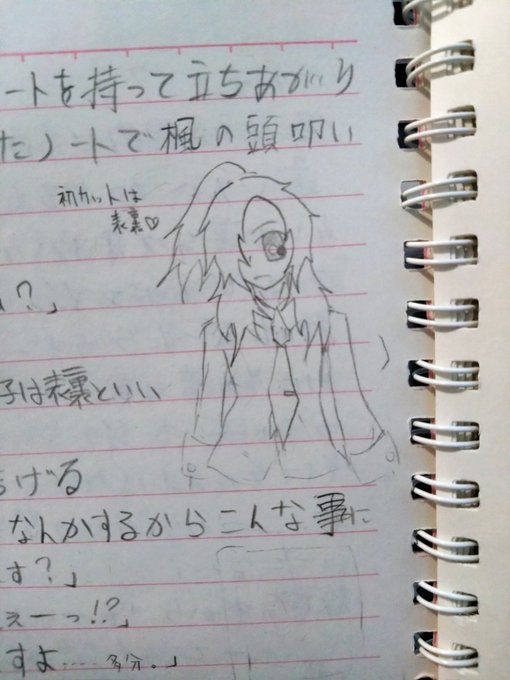 ートを持って立ちあがり
たノートで楓の頭叩い
初カットは
表裏♡
？」
子は表裏といい
げる
なんかするからこんな事に
す？」
ぇーっ!?」
すよ……多分。」